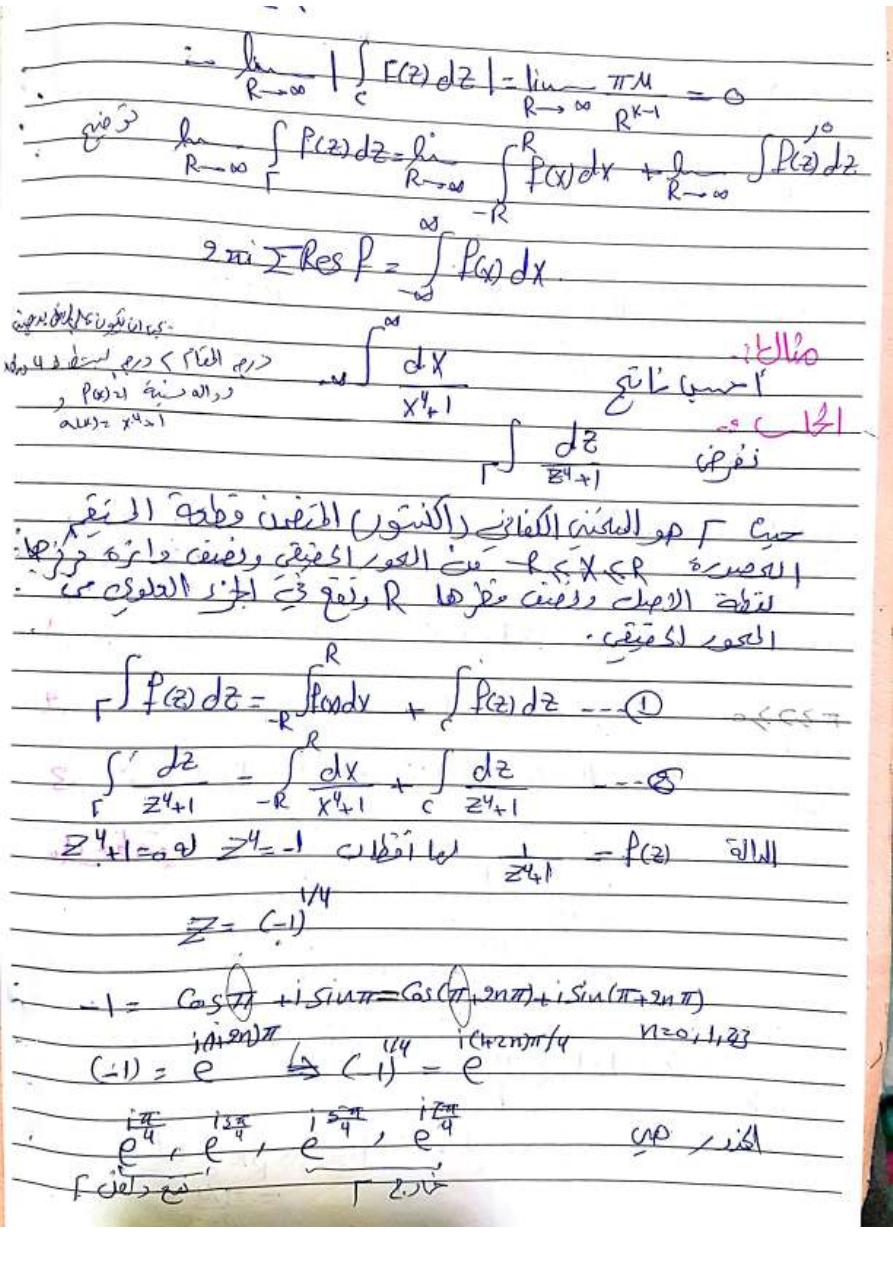 ∴ lim_{R→∞} |∫_c F(z) dz| = lim_{R→∞} πM / R^{K-1} = 0
lim_{R→∞} ∫_Γ f(z) dz = lim_{R→∞} ∫_{-R}^{R} f(x) dx + lim_{R→∞} ∫ f(z) dz → 0
2πi Σ Res f = ∫_{-∞}^{∞} f(x) dx.
مثال:
احسب ناتج ∫_{-∞}^{∞} dx / (x⁴+1)
درجة المقام > درجة البسط
P(x)=1 و
Q(x)= x⁴+1
الحل:
نفرض ∫_Γ dz / (z⁴+1)
حيث Γ هو المنحنى الكفافي (الكنتور) المتضمن قطعة
-R ≤ X ≤ R من المحور الحقيقي ونصف دائرة مركزها
نقطة الاصل ونصف قطرها R وتقع في الجزء العلوي من
المحور الحقيقي.
∫_Γ f(z) dz = ∫_{-R}^{R} f(x) dx + ∫_c f(z) dz --- ①
∫_Γ dz / (z⁴+1) = ∫_{-R}^{R} dx / (x⁴+1) + ∫_c dz / (z⁴+1) --- ②
الدالة f(z) = 1 / (z⁴+1) لها أقطاب z⁴=-1 او z⁴+1=0
z = (-1)^{1/4}
-1 = Cos π + i Sin π = Cos(π+2nπ) + i Sin(π+2nπ)
n=0,1,2,3
(-1) = e^{i(1+2n)π} ⇒ (-1)^{1/4} = e^{i(1+2n)π/4}
الجذور هي e^{iπ/4} , e^{i3π/4} , e^{i5π/4} , e^{i7π/4}
تقع داخل Γ خارج Γ